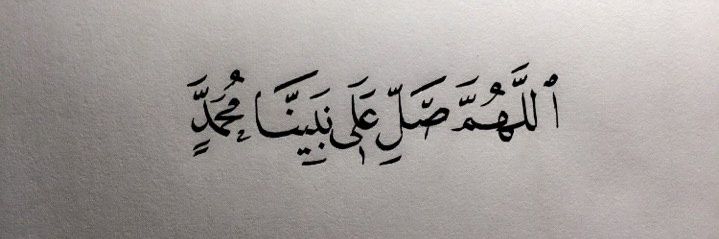 ٱللَّهُمَّ صَلِّ عَلَى نَبِيِّنَا مُحَمَّدٍ